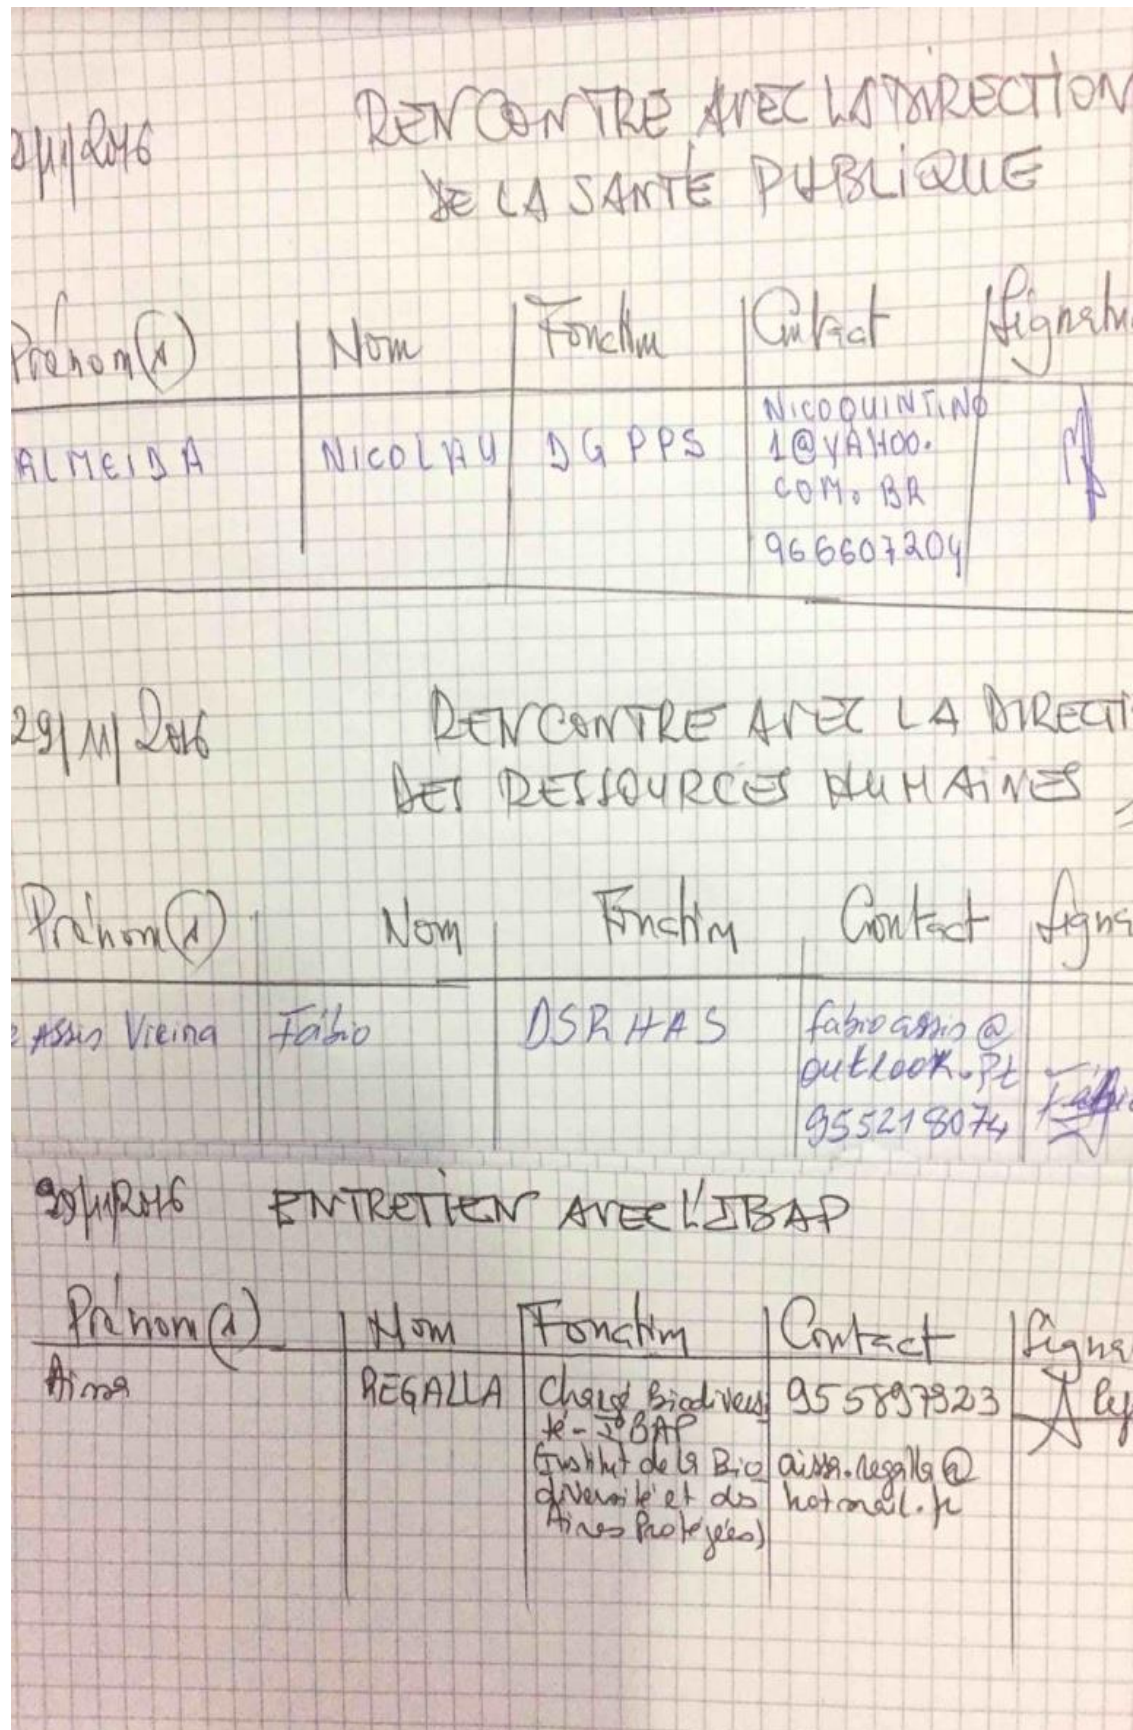 /11/2016
RENCONTRE AVEC LA DIRECTION
DE LA SANTÉ PUBLIQUE
Prénom(s) Nom Fonction Contact Signatu
ALMEIDA NICOLAU DG PPS NICOQUINTINO
1@YAHOO.
COM.BR
966607204
29/11/2016
RENCONTRE AVEC LA DIRECTI
DES RESSOURCES HUMAINES
Prénom(s) Nom Fonction Contact Signa
e Assis Vieira Fábio DSRHAS fabioassis@
outlook.pt
955218074 Fábio
29/11/2016 ENTRETIEN AVEC L'IBAP
Prénom(s) Nom Fonction Contact Signa
Aissa REGALLA Chargé Biodiversi 955897923
té - IBAP
(Institut de la Bio aissa.regalla@
diversité et des hotmail.fr
Aires Protégées)